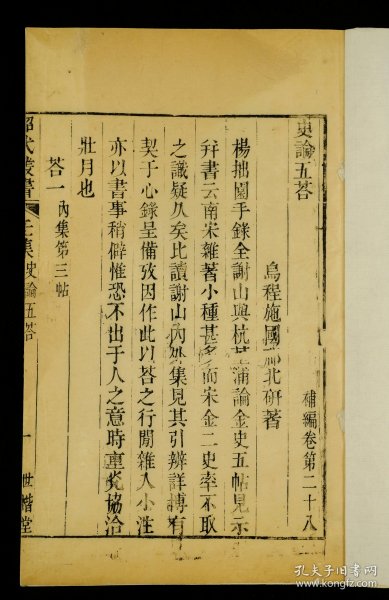 史論五荅
補編卷第二十八
烏程施國祁北研著
楊拙園手錄全謝山與杭堇浦論金史五帖見示
并書云南宋雜著小種甚多而宋金二史率不取
之識疑久矣比讀謝山內外集見其引辨詳博有
契于心錄呈備攷因作此以荅之行間雜人小注
亦以書事稍僻惟恐不出于人之意時重光協洽
壯月也
荅一 內集第三帖
昭代叢書 壬集史論五荅 一 世楷堂
孔夫子旧书网
www.kongfz.com